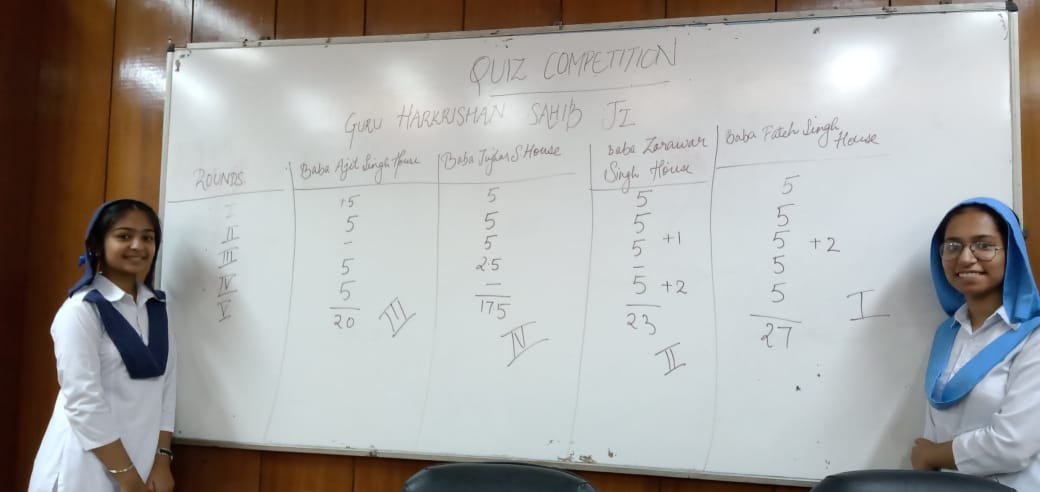 QUIZ COMPETITION
GURU HARKRISHAN SAHIB JI
ROUNDS Baba Ajit Singh House Baba Jujhar S House Baba Zorawar Singh House Baba Fateh Singh House
I +5 5 5 5
II 5 5 5 5
III - 5 5 +1 5 +2
IV 5 2.5 - 5
V 5 - 5 +2 5
20 III 17.5 IV 23 II 27 I